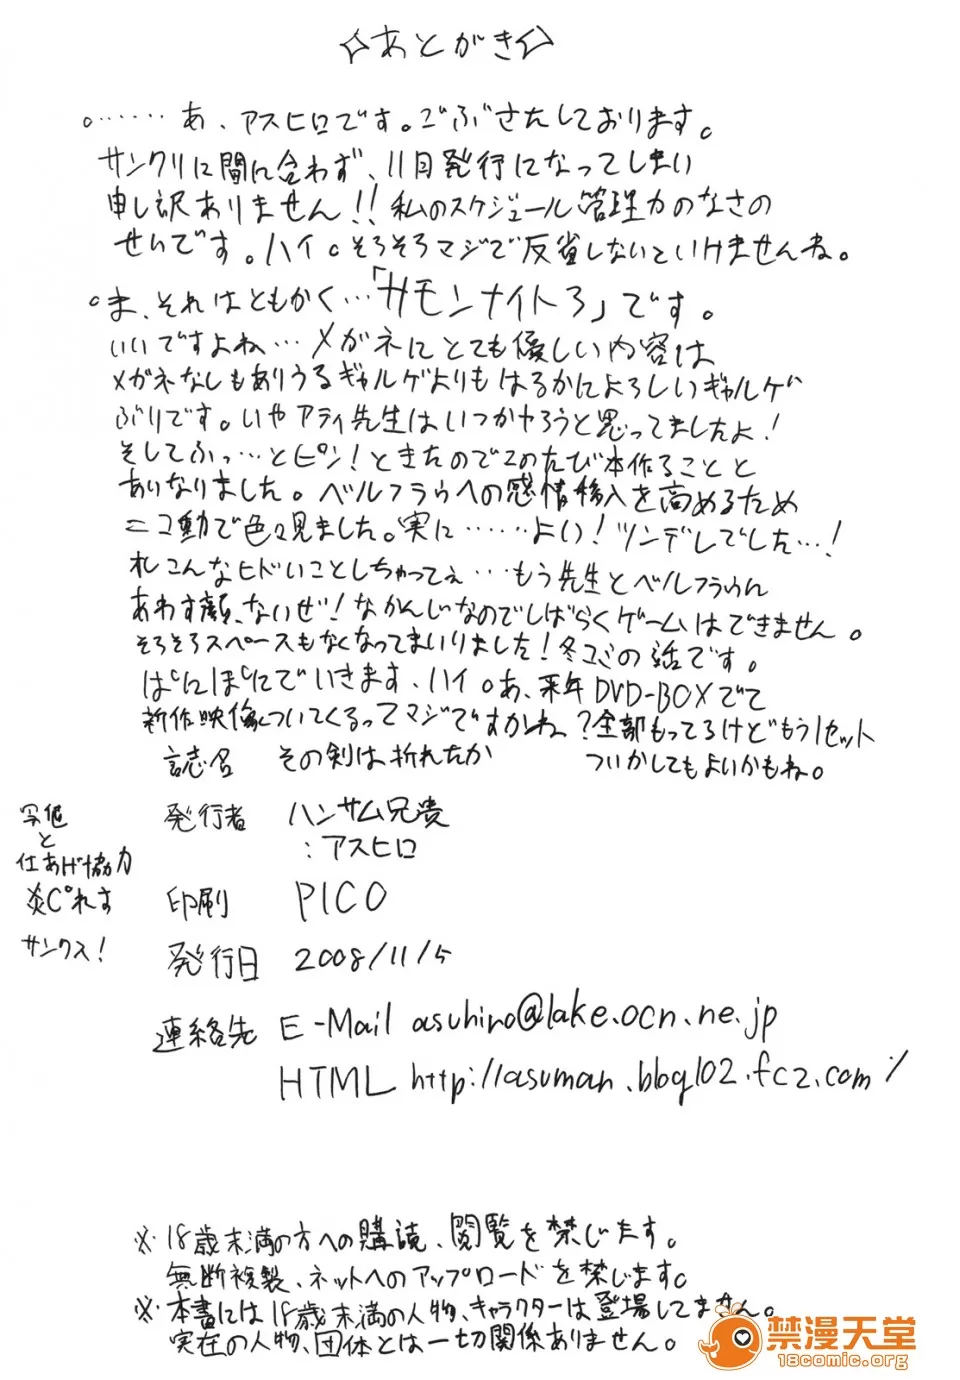 ☆あとがき☆
。・・・・・・あ、アスヒロです。ごぶさたしております。
サンクリに間に合わず、11月発行になってしまい
申し訳ありません!!私のスケジュール管理力のなさの
せいです。ハイ。そろそろマジで反省しないといけませんね。
。ま、それはともかく…「サモンナイト3」です。
いいですよね…メガネにとても優しい内容は
メガネなしもありうるギャルゲよりもはるかによろしいギャルゲ
ぶりです。いやアティ先生はいつかやろうと思ってましたよ!
そしてふっ…とピン!ときたのでこのたび本作ることと
あいなりました。ベルフラウへの感情移入を高めるため
ニコ動で色々見ました。実に……よい!ツンデレでした…!
こんなヒドいことしちゃってぇ…もう先生とベルフラウに
あわす顔、ないぜ!なかんじなのでしばらくゲームはできません。
そろそろスペースもなくなってまいりました!冬コミの話です。
ぱにぽにでいきます、ハイ。あ、来年DVD-BOXでて
新作映像ついてくるってマジですかね?全部もってるけどもう1セット
ついかしてもよいかもね。
誌名 その剣は折れたか
発行者 ハンサム兄貴
:アスヒロ
印刷 PICO
発行日 2008/11/5
連絡先 E-Mail asuhiro@lake.ocn.ne.jp
HTML http://asuman.blog102.fc2.com/
写植
と
仕あげ協力
炎ぴれす
サンクス!
※18歳未満の方への購読、閲覧を禁じます。
無断複製、ネットへのアップロードを禁じます。
※本書には18歳未満の人物、キャラクターは登場してません。
実在の人物、団体とは一切関係ありません。
禁漫天堂
18comic.org